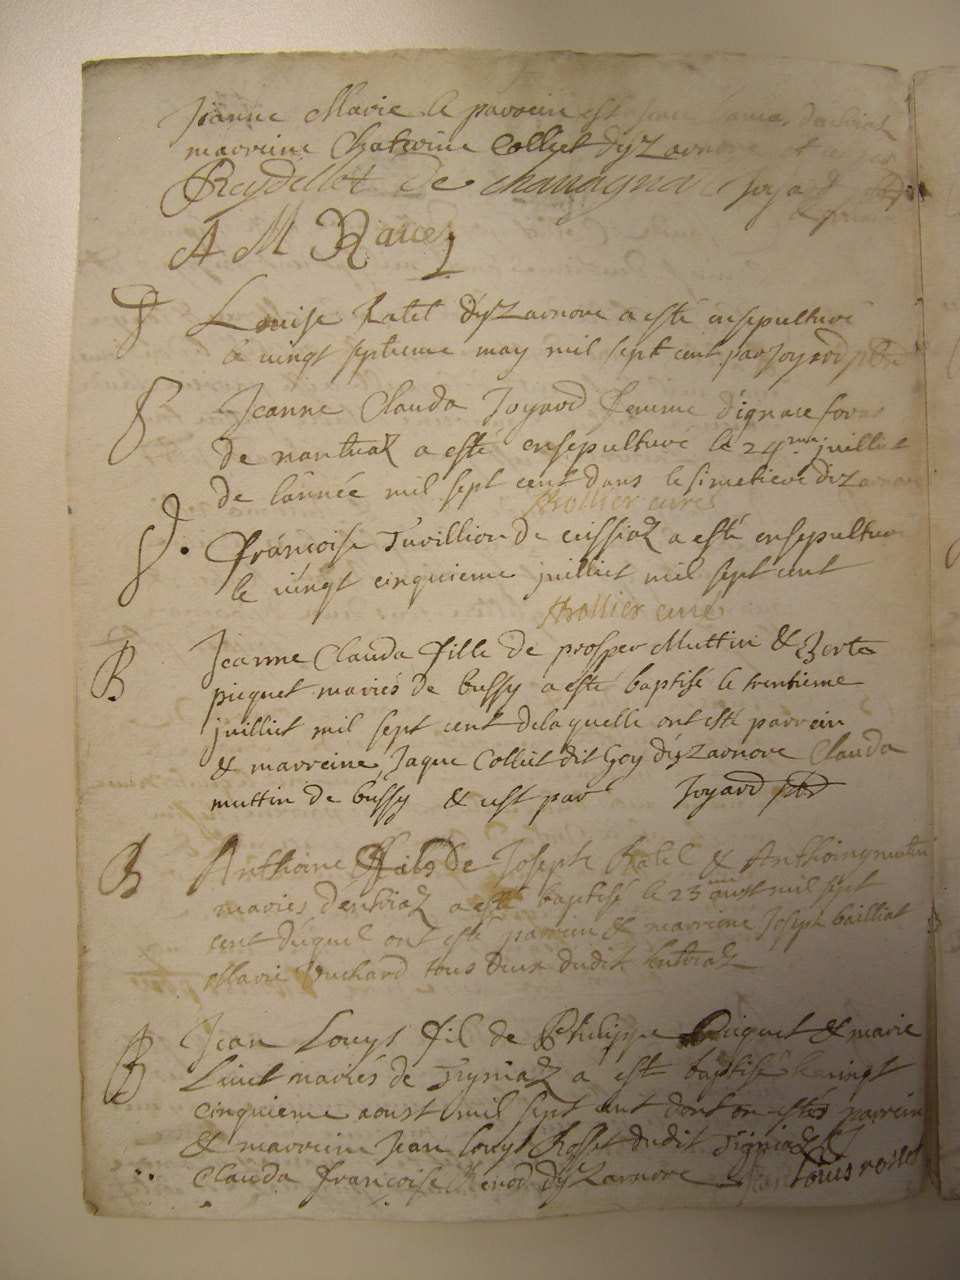 Jeanne Marie le parrein est
marreine Chaterine Colliet dyzarnore
Reydellet De chanagna Joyard
A M Ravez
S Louise Ratel dyzarnore a esté ensepulturé
le vingt septieme may mil sept cent par Joyard pbr
S Jeanne Clauda Joyard femme d'ignace foras
de nantuaz a esté ensepulturé le 24me juillet
de l'année mil sept cent dans le simetiere dizarnore
Brollier curé
S. francoise Tuvillion de cussiaz a esté ensepulturé
le vingt cinquieme juilliet mil sept cent
Brollier curé
B Jeanne Clauda fille de prosper Muttin & berte
picquet mariés de bussy a esté baptisé le trentieme
juilliet mil sept cent de laquelle ont esté parrein
& marreine Jaque Colliet dit Goy dyzarnore Clauda
muttin de bussy & c'est par Joyard pbr
B Anthoine fils de Joseph Ratel &
mariés a esté baptisé le 23 aoust mil sept
cent duquel ont esté parrein & marreine Joseph bailliat
Marie tous deux dudit
B Jean Louys fil de Philippe Picquet & marie
mariés de Tigniaz a esté baptisé le vingt
cinquieme aoust mil sept cent dont on esté parrein
& marreine Jean Louys Roset dudit Tigniaz &
Clauda francoise dyzarnore Jean Louis roset